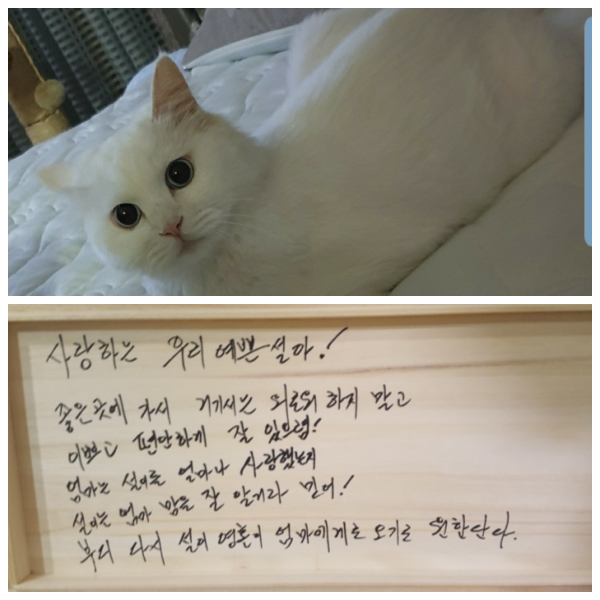 사랑하는 우리 예쁜 설아!
좋은곳에 가서 거기서는 외로워 하지 말고
이쁘고 편안하게 잘 있으렴!
엄마는 설이를 얼마나 사랑했는지
설이는 엄마 맘을 잘 알거라 믿어!
부디 다시 설이 영혼이 엄마에게로 오기를 원한단다.